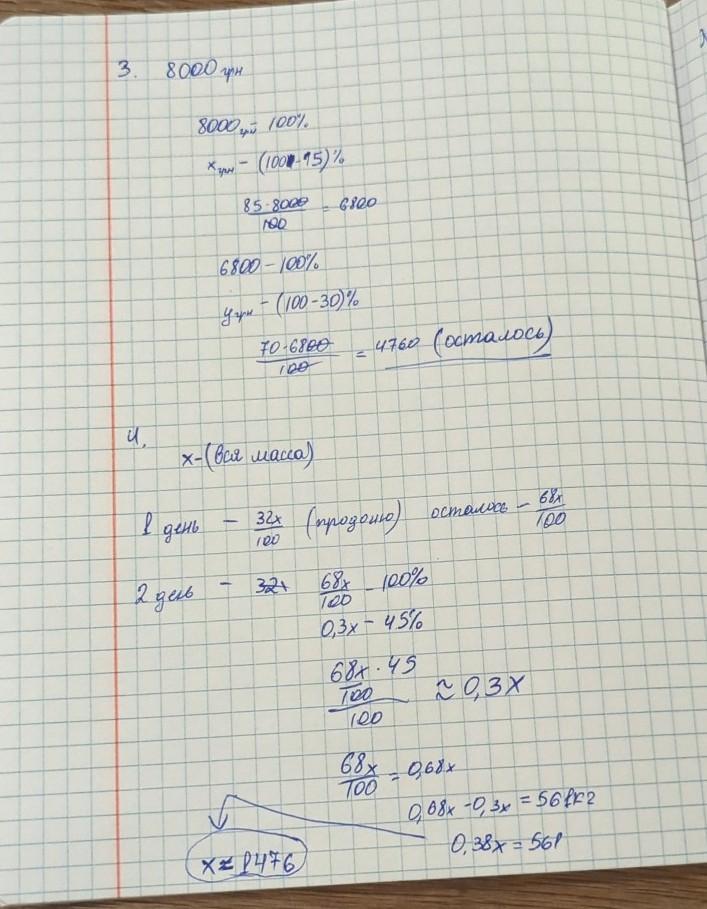 3. 8000 грн
8000 грн - 100%
x грн - (100-15)%
85·8000/100 = 6800
6800 - 100%
y грн - (100-30)%
70·6800/100 = 4760 (осталось)
4.
x-(вся масса)
1 день - 32x/100 (продоню) осталось - 68x/100
2 день - 32x 68x/100 - 100%
0,3x - 45%
68x/100 · 45/100 ≈ 0,3x
68x/100 = 0,68x
0,68x - 0,3x = 561кг
0,38x = 561
x ≈ 1476